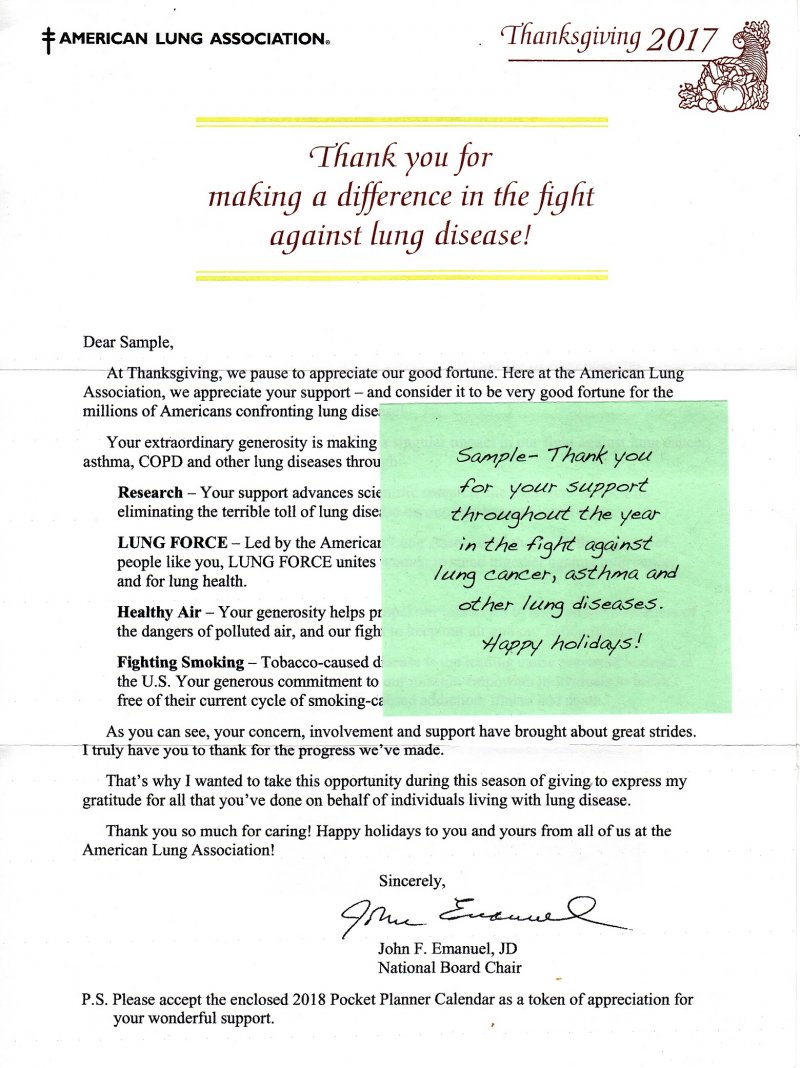 AMERICAN LUNG ASSOCIATION®
Thanksgiving 2017
Thank you for
making a difference in the fight
against lung disease!
Dear Sample,
At Thanksgiving, we pause to appreciate our good fortune. Here at the American Lung
Association, we appreciate your support – and consider it to be very good fortune for the
millions of Americans confronting lung dise
Your extraordinary generosity is making
asthma, COPD and other lung diseases throu
Research – Your support advances scie
eliminating the terrible toll of lung dise
LUNG FORCE – Led by the American
people like you, LUNG FORCE unites
and for lung health.
Healthy Air – Your generosity helps pr
the dangers of polluted air, and our figh
Fighting Smoking – Tobacco-caused d
the U.S. Your generous commitment to
free of their current cycle of smoking-ca
Sample- Thank you
for your support
throughout the year
in the fight against
lung cancer, asthma and
other lung diseases.
Happy holidays!
As you can see, your concern, involvement and support have brought about great strides.
I truly have you to thank for the progress we've made.
That's why I wanted to take this opportunity during this season of giving to express my
gratitude for all that you've done on behalf of individuals living with lung disease.
Thank you so much for caring! Happy holidays to you and yours from all of us at the
American Lung Association!
Sincerely,
John Emanuel
John F. Emanuel, JD
National Board Chair
P.S. Please accept the enclosed 2018 Pocket Planner Calendar as a token of appreciation for
your wonderful support.